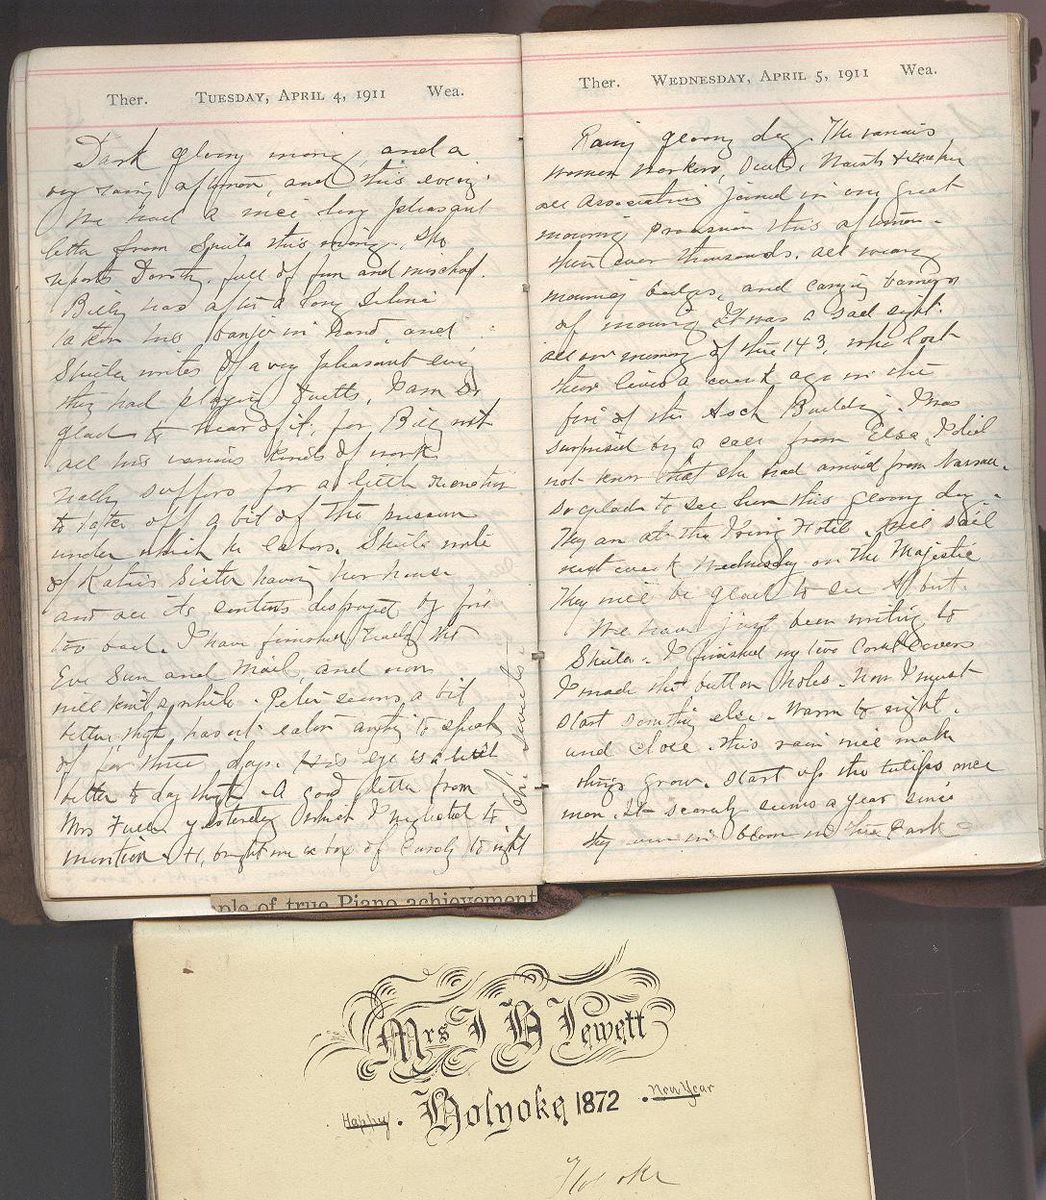 Ther. Tuesday, April 4, 1911 Wea.
Dark gloomy morning, and a
very rainy afternoon, and this evening.
We had a nice long pleasant
letter from Sheila this morning. She
reports Dorothy full of fun and mischief.
Billy has after a long
taken his banjo in hand and
Sheila writes of a very pleasant evening
they had playing duetts, I am so
glad to hear of it, for Billy with
all his various kinds of work
really suffers for a little recreation
to take off a bit of the pressure
under which he labors. Sheila wrote
of Katies Sister having her house
and all its contents destroyed by fire
too bad. I have finished reading the
Eve Sun and Mail, and now
will knit a while. Peter seems a bit
better, though hasnt eaten anything to speak
of for three days. His eye is a little
better to day though. A good letter from
Mrs Fuller yesterday which I neglected to
mention. H, brought me a box of Candy to night
Oh! Sweets!
Ther. Wednesday, April 5, 1911 Wea.
Rainy gloomy day. The various
women workers,
all Associations joined in one great
mourning procession this afternoon.
there were thousands, all wearing
mourning badges, and carrying banners
of mourning It was a sad sight.
all in memory of the 143, who lost
their lives a week ago in the
fire of the Asch Building. I was
surprised by a call from Elsa, I did
not know that she had arrived from Nassau.
so glad to see her this gloomy day.
They are at the Irving Hotel. will sail
next week Wednesday on the Majestic
They will be glad to see Albert.
We have just been writing to
Sheila. I finished my two Corset Covers
I made the button holes. Now I must
start something else. Warm to night.
and close. this rain will make
things grow. Start up the tulips once
more. It scarcely seems a year since
they were in bloom in the Park
ple of true Piano achievement
Mrs I B Jewett
Happy. Holyoke 1872 . New Year